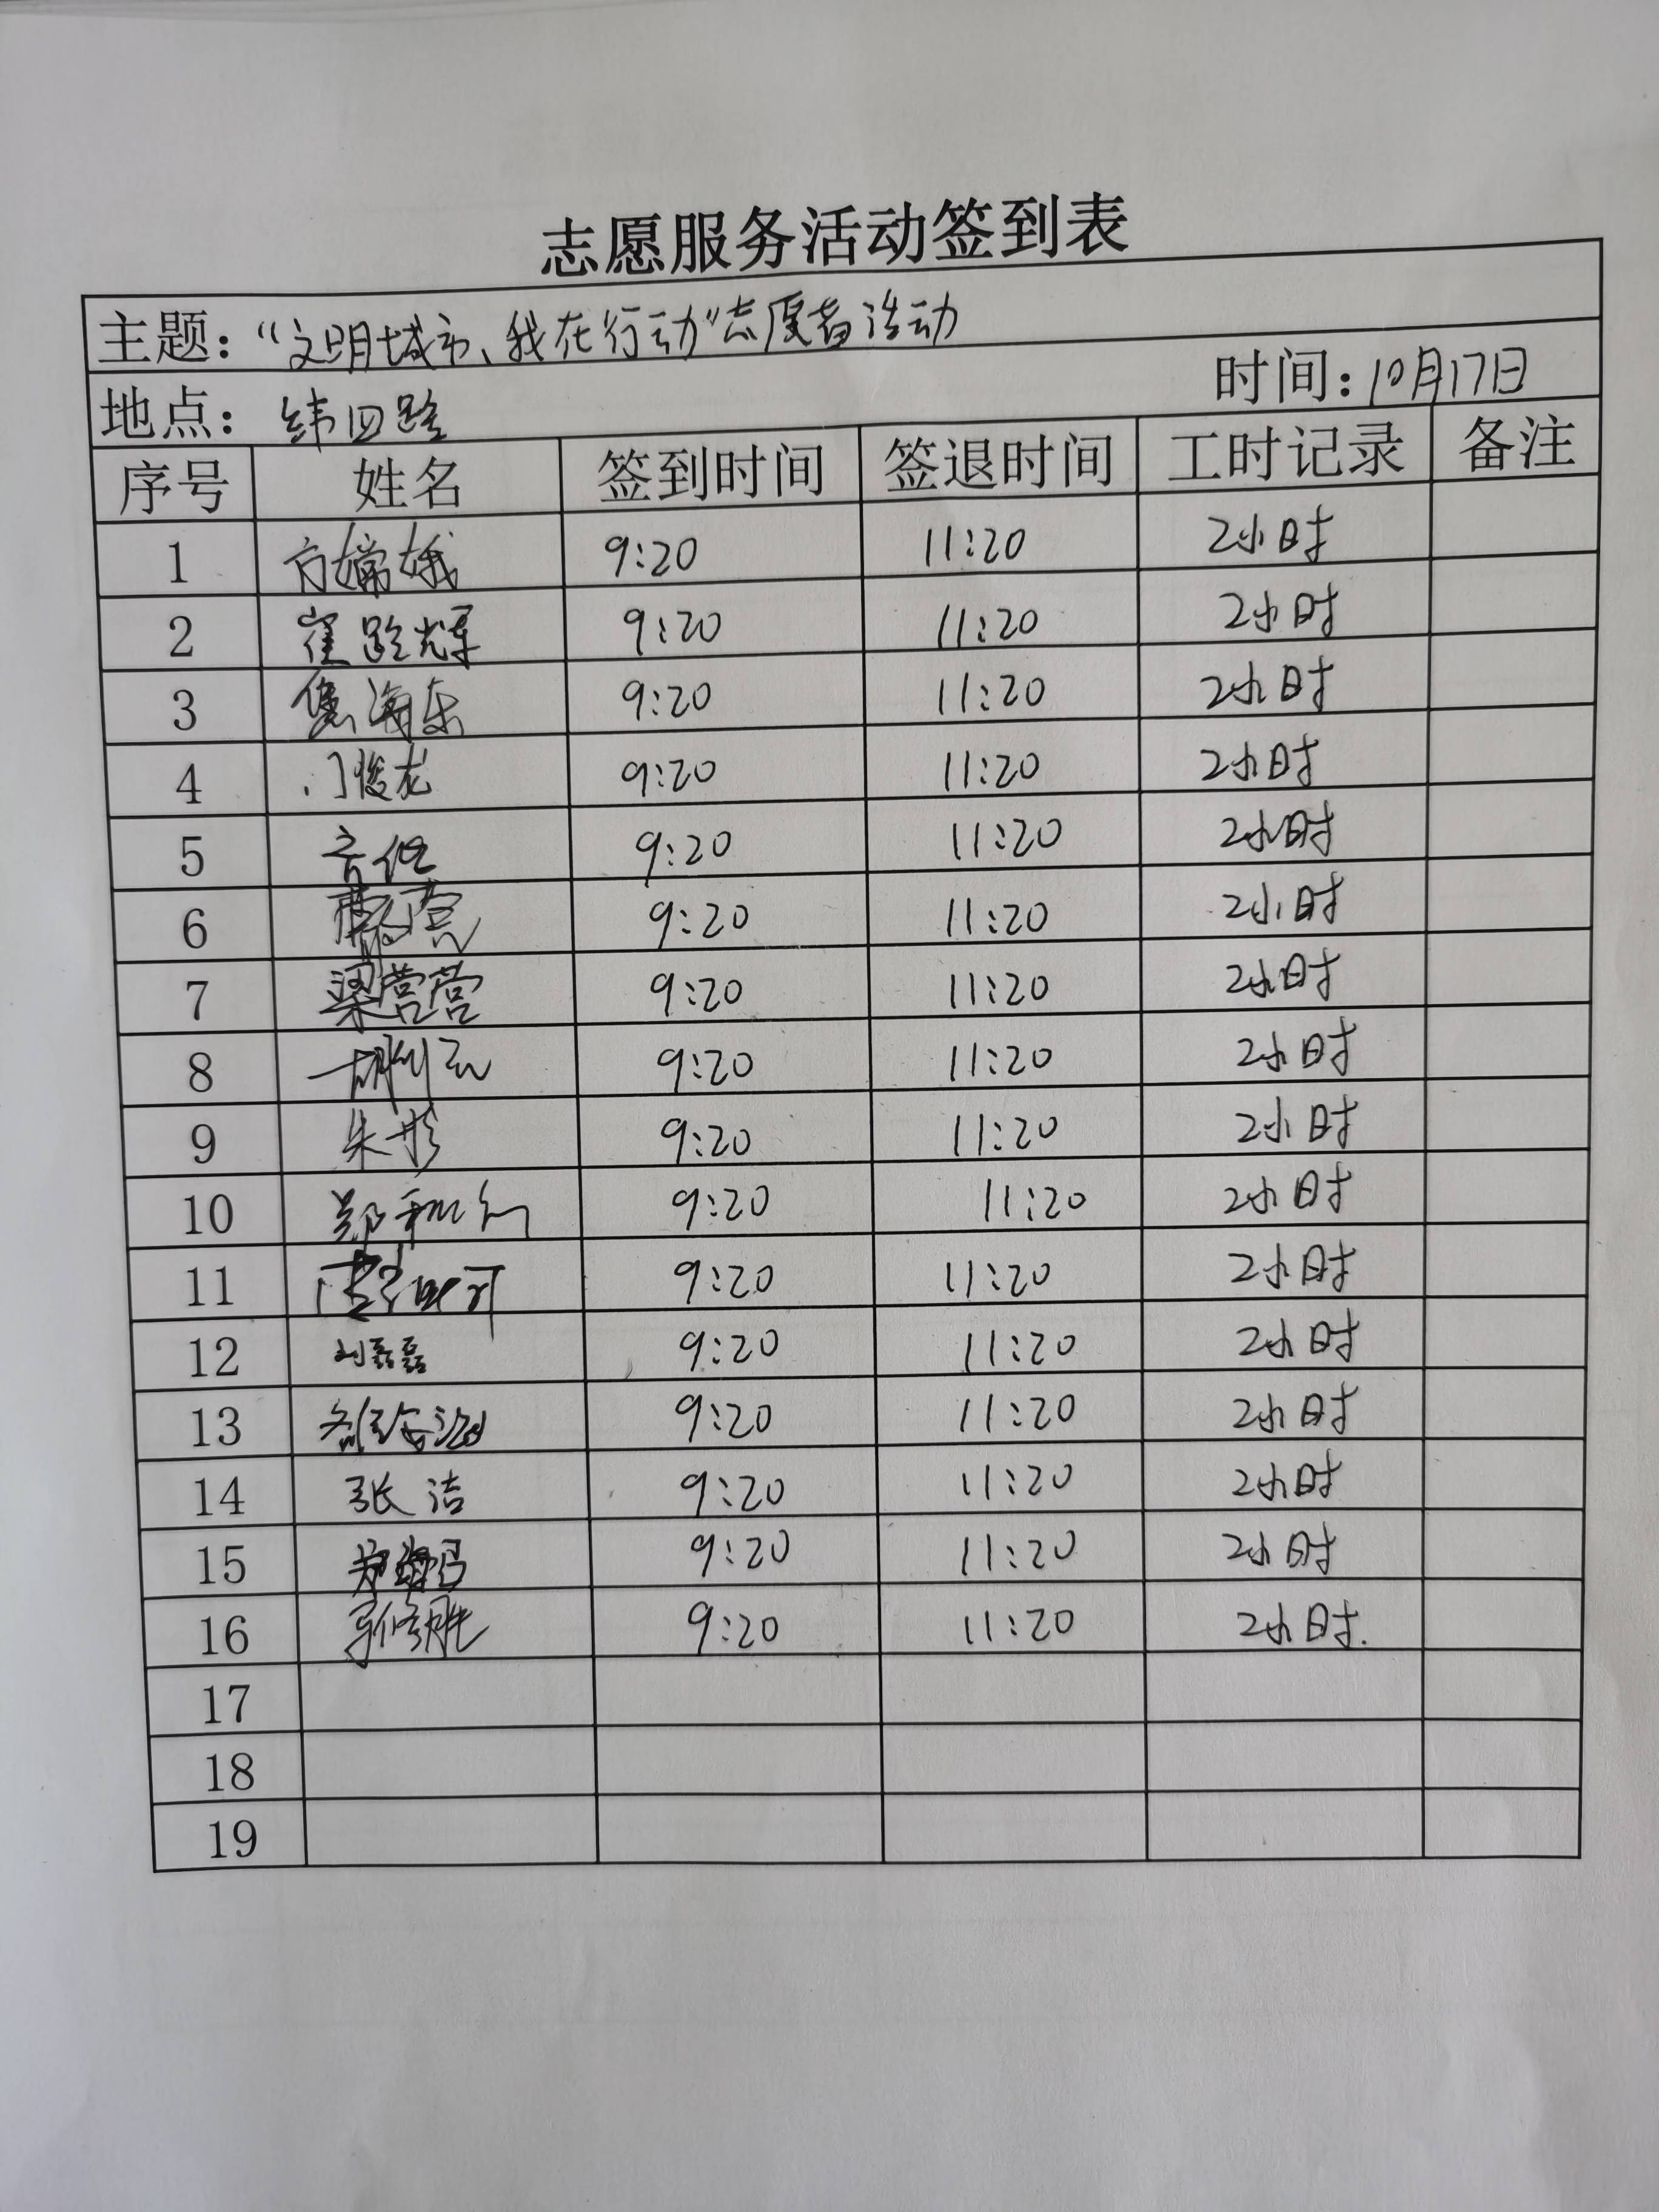 志愿服务活动签到表
主题："文明城市、我在行动"志愿者活动
地点：纬四路 时间：10月17日
序号 姓名 签到时间 签退时间 工时记录 备注
1 方嫦娥 9:20 11:20 2小时
2 崔路辉 9:20 11:20 2小时
3 焦海东 9:20 11:20 2小时
4 门俊龙 9:20 11:20 2小时
5 9:20 11:20 2小时
6 9:20 11:20 2小时
7 梁营营 9:20 11:20 2小时
8 9:20 11:20 2小时
9 朱彤 9:20 11:20 2小时
10 9:20 11:20 2小时
11 9:20 11:20 2小时
12 刘磊磊 9:20 11:20 2小时
13 9:20 11:20 2小时
14 张洁 9:20 11:20 2小时
15 9:20 11:20 2小时
16 9:20 11:20 2小时.
17
18
19